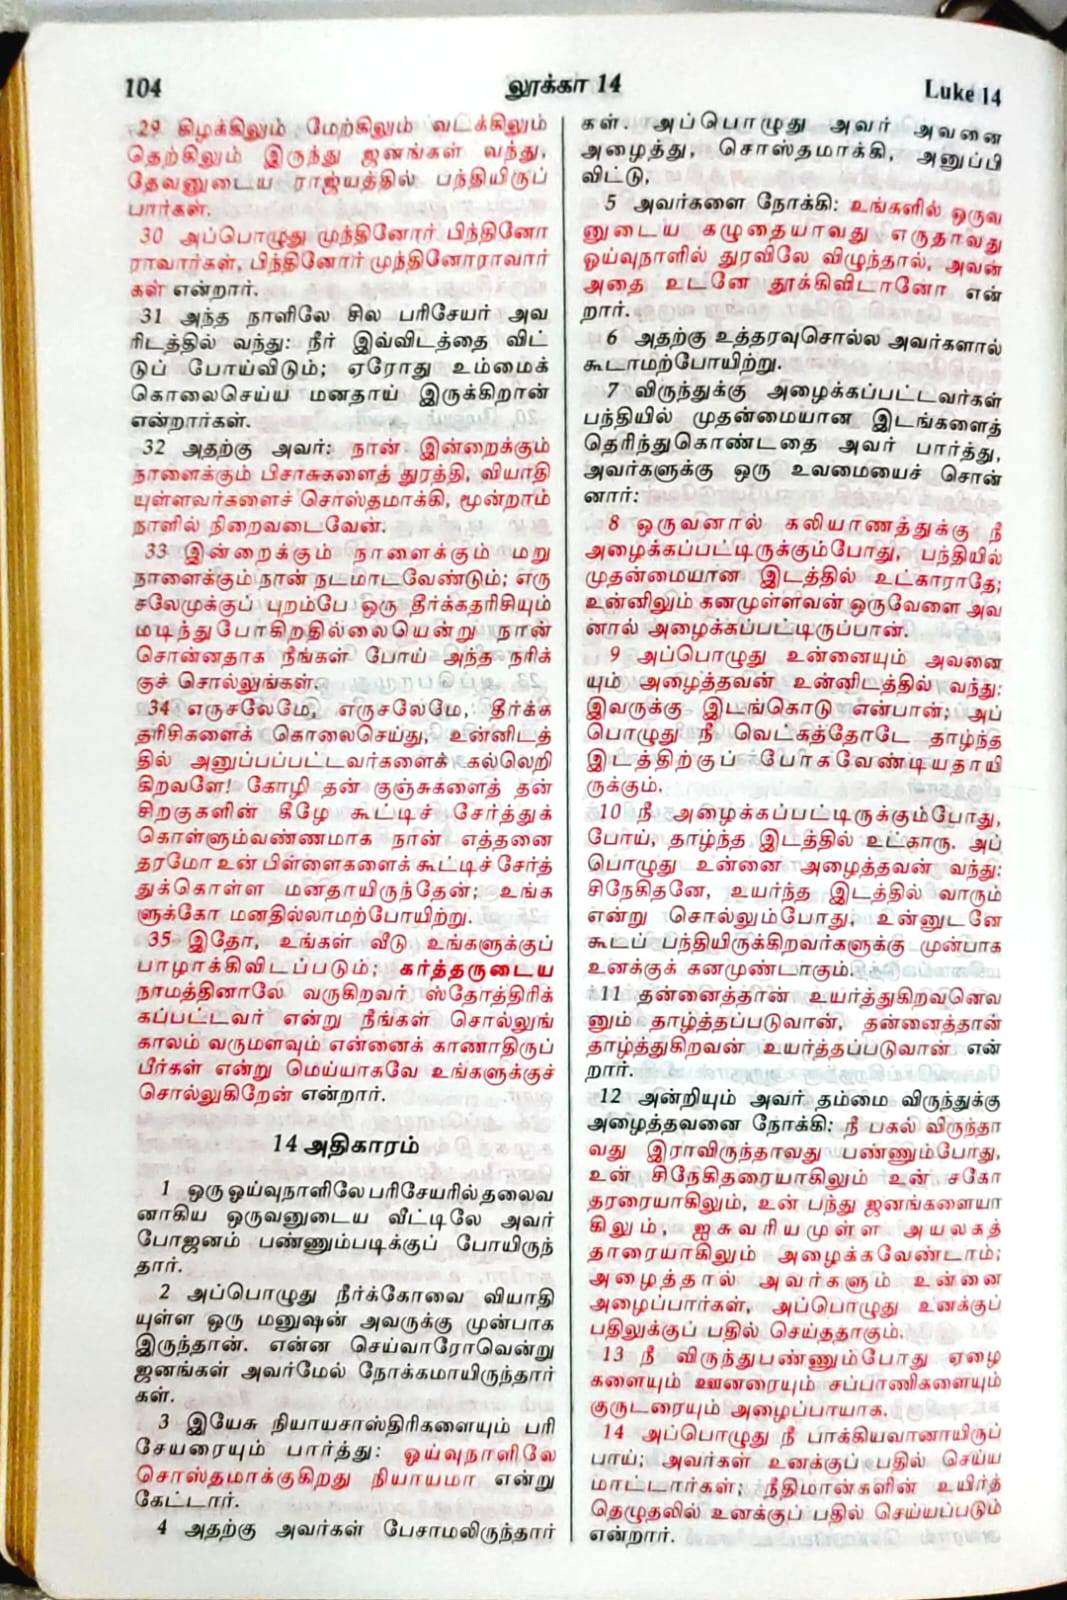 104
லூக்கா 14
Luke 14
29 கிழக்கிலும் மேற்கிலும் வடக்கிலும்
தெற்கிலும் இருந்து ஜனங்கள் வந்து,
தேவனுடைய ராஜ்யத்தில் பந்தியிருப்
பார்கள்.
30 அப்பொழுது முந்தினோர் பிந்தினோ
ராவார்கள், பிந்தினோர் முந்தினோராவார்
கள் என்றார்.
31 அந்த நாளிலே சில பரிசேயர் அவ
ரிடத்தில் வந்து: நீர் இவ்விடத்தை விட்
டுப் போய்விடும்; ஏரோது உம்மைக்
கொலைசெய்ய மனதாய் இருக்கிறான்
என்றார்கள்.
32 அதற்கு அவர்: நான் இன்றைக்கும்
நாளைக்கும் பிசாசுகளைத் துரத்தி, வியாதி
யுள்ளவர்களைச் சொஸ்தமாக்கி, மூன்றாம்
நாளில் நிறைவடைவேன்.
33 இன்றைக்கும் நாளைக்கும் மறு
நாளைக்கும் நான் நடமாடவேண்டும்; எரு
சலேமுக்குப் புறம்பே ஒரு தீர்க்கதரிசியும்
மடிந்துபோகிறதில்லையென்று நான்
சொன்னதாக நீங்கள் போய் அந்த நரிக்
குச் சொல்லுங்கள்.
34 எருசலேமே, எருசலேமே, தீர்க்க
தரிசிகளைக் கொலைசெய்து, உன்னிடத்
தில் அனுப்பப்பட்டவர்களைக் கல்லெறி
கிறவளே! கோழி தன் குஞ்சுகளைத் தன்
சிறகுகளின் கீழே கூட்டிச் சேர்த்துக்
கொள்ளும்வண்ணமாக நான் எத்தனை
தரமோ உன் பிள்ளைகளைக் கூட்டிச் சேர்த்
துக்கொள்ள மனதாயிருந்தேன்; உங்க
ளுக்கோ மனதில்லாமற்போயிற்று.
35 இதோ, உங்கள் வீடு உங்களுக்குப்
பாழாக்கிவிடப்படும்; கர்த்தருடைய
நாமத்தினாலே வருகிறவர் ஸ்தோத்திரிக்
கப்பட்டவர் என்று நீங்கள் சொல்லுங்
காலம் வருமளவும் என்னைக் காணாதிருப்
பீர்கள் என்று மெய்யாகவே உங்களுக்குச்
சொல்லுகிறேன் என்றார்.
14 அதிகாரம்
1 ஒரு ஓய்வுநாளிலே பரிசேயரில் தலைவ
னாகிய ஒருவனுடைய வீட்டிலே அவர்
போஜனம் பண்ணும்படிக்குப் போயிருந்
தார்.
2 அப்பொழுது நீர்க்கோவை வியாதி
யுள்ள ஒரு மனுஷன் அவருக்கு முன்பாக
இருந்தான். என்ன செய்வாரோவென்று
ஜனங்கள் அவர்மேல் நோக்கமாயிருந்தார்
கள்.
3 இயேசு நியாயசாஸ்திரிகளையும் பரி
சேயரையும் பார்த்து: ஓய்வுநாளிலே
சொஸ்தமாக்குகிறது நியாயமா என்று
கேட்டார்.
4 அதற்கு அவர்கள் பேசாமலிருந்தார்
கள். அப்பொழுது அவர் அவனை
அழைத்து, சொஸ்தமாக்கி, அனுப்பி
விட்டு,
5 அவர்களை நோக்கி: உங்களில் ஒருவ
னுடைய கழுதையாவது எருதாவது
ஓய்வுநாளில் துரவிலே விழுந்தால், அவன்
அதை உடனே தூக்கிவிடானோ என்
றார்.
6 அதற்கு உத்தரவுசொல்ல அவர்களால்
கூடாமற்போயிற்று.
7 விருந்துக்கு அழைக்கப்பட்டவர்கள்
பந்தியில் முதன்மையான இடங்களைத்
தெரிந்துகொண்டதை அவர் பார்த்து,
அவர்களுக்கு ஒரு உவமையைச் சொன்
னார்:
8 ஒருவனால் கலியாணத்துக்கு நீ
அழைக்கப்பட்டிருக்கும்போது, பந்தியில்
முதன்மையான இடத்தில் உட்காராதே;
உன்னிலும் கனமுள்ளவன் ஒருவேளை அவ
னால் அழைக்கப்பட்டிருப்பான்.
9 அப்பொழுது உன்னையும் அவனை
யும் அழைத்தவன் உன்னிடத்தில் வந்து:
இவருக்கு இடங்கொடு என்பான்; அப்
பொழுது நீ வெட்கத்தோடே தாழ்ந்த
இடத்திற்குப் போகவேண்டியதாயி
ருக்கும்.
10 நீ அழைக்கப்பட்டிருக்கும்போது,
போய், தாழ்ந்த இடத்தில் உட்காரு. அப்
பொழுது உன்னை அழைத்தவன் வந்து:
சிநேகிதனே, உயர்ந்த இடத்தில் வாரும்
என்று சொல்லும்போது, உன்னுடனே
கூடப் பந்தியிருக்கிறவர்களுக்கு முன்பாக
உனக்குக் கனமுண்டாகும்.
11 தன்னைத்தான் உயர்த்துகிறவனெவ
னும் தாழ்த்தப்படுவான், தன்னைத்தான்
தாழ்த்துகிறவன் உயர்த்தப்படுவான் என்
றார்.
12 அன்றியும் அவர் தம்மை விருந்துக்கு
அழைத்தவனை நோக்கி: நீ பகல் விருந்தா
வது இராவிருந்தாவது பண்ணும்போது,
உன் சிநேகிதரையாகிலும் உன் சகோ
தரரையாகிலும், உன் பந்து ஜனங்களையா
கிலும், ஐசுவரியமுள்ள அயலகத்
தாரையாகிலும் அழைக்கவேண்டாம்;
அழைத்தால் அவர்களும் உன்னை
அழைப்பார்கள், அப்பொழுது உனக்குப்
பதிலுக்குப் பதில் செய்ததாகும்.
13 நீ விருந்துபண்ணும்போது ஏழை
களையும் ஊனரையும் சப்பாணிகளையும்
குருடரையும் அழைப்பாயாக.
14 அப்பொழுது நீ பாக்கியவானாயிருப்
பாய்; அவர்கள் உனக்குப் பதில் செய்ய
மாட்டார்கள்; நீதிமான்களின் உயிர்த்
தெழுதலில் உனக்குப் பதில் செய்யப்படும்
என்றார்.